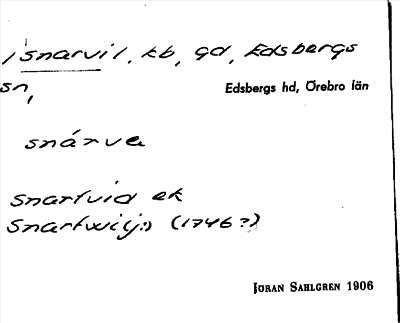 Snarvil, kb, gd, Edsbergs
sn,
Edsbergs hd, Örebro län
snárva
snartvid ek
Snartwij:) (1746?)
JÖRAN SAHLGREN 1906